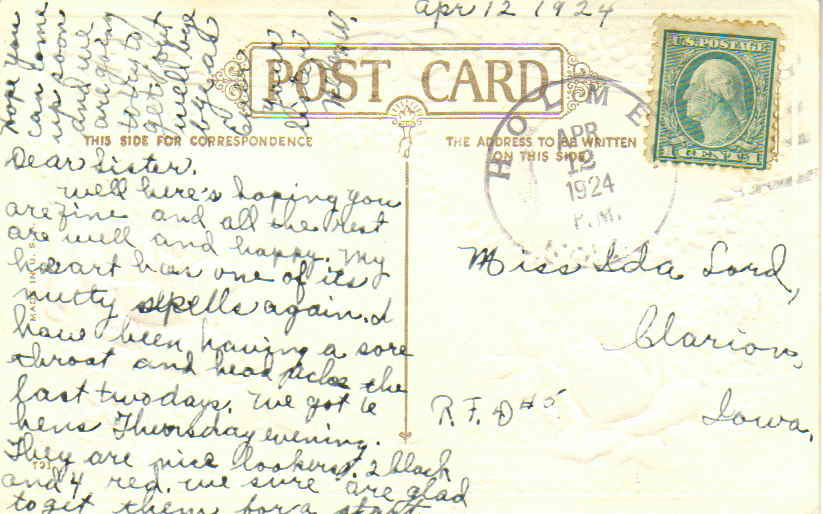 Apr 12 1924
Hope you
can come
up soon
and we
are going
to try to
get out
well bye
bye as
Ever
your
sister
U.S. POSTAGE
1 CENT 1
POST CARD
THIS SIDE FOR CORRESPONDENCE
THE ADDRESS TO BE WRITTEN
ON THIS SIDE
HOLME
APR
12
1924
P.M.
Dear Sister.
Well here's hoping you
are fine and all the rest
are well and happy. My
heart has one of its
nutty spells again. I
have been having a sore
throat and head ache the
last two days. We got 6
hens Thursday evening.
They are nice lookers. 2 black
and 4 red. we sure are glad
to get them for a start
Miss Ida Lord,
Clarion,
R.F.D #5
Iowa.
MADE IN U.S.